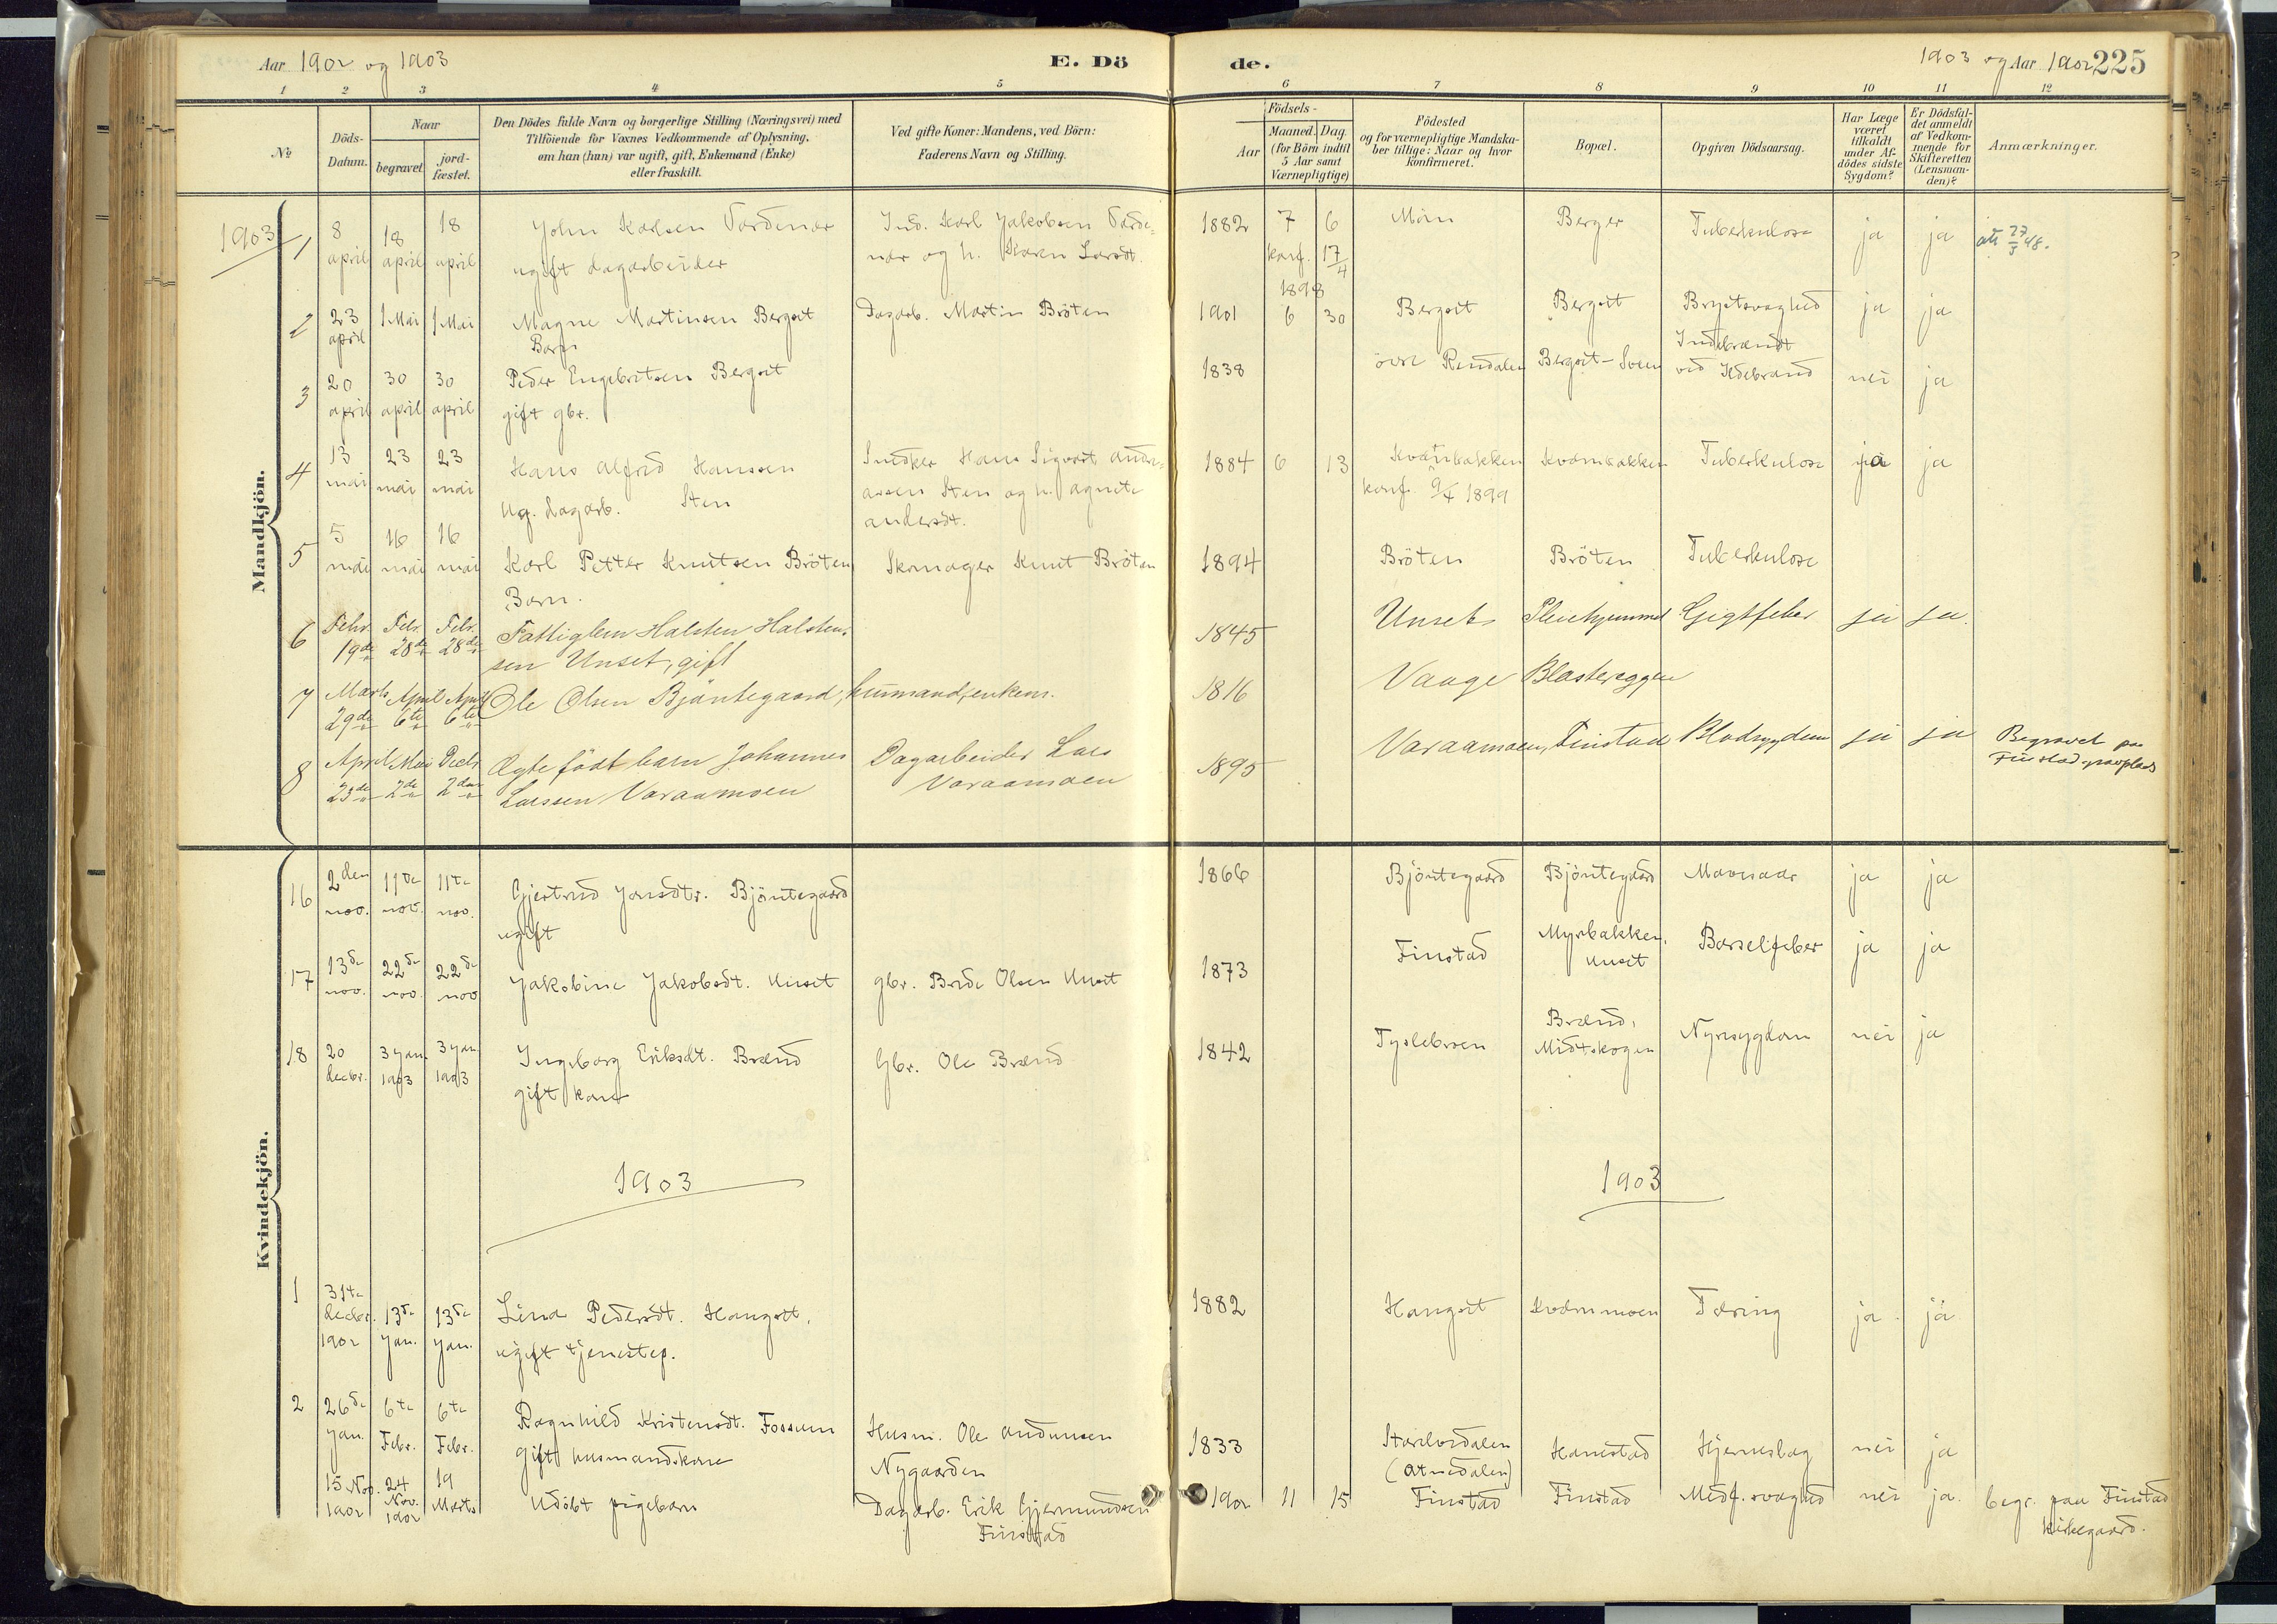 Aar 1902 og 1903
E. Dö
de.
1903 og Aar 1902 225
1 2 3 4 5 6 7 8 9 10 11 12
No
Döds-
Datum.
Naar
begravet
jord-
fæstet.
Den Dödes fulde Navn og borgerlige Stilling (Næringsvei) med
Tilföiende for Voxnes Vedkommende af Oplysning,
om han (hun) var ugift, gift, Enkemand (Enke)
eller fraskilt.
Ved gifte Koner: Mandens, ved Börn:
Faderens Navn og Stilling.
Födsels-
Aar
Maaned. Dag.
(for Börn indtil
5 Aar samt
Værnepligtige)
Födested
og for værnepligtige Mandska-
ber tillige: Naar og hvor
Konfirmeret.
Bopæl.
Opgiven Dödsaarsag.
Har Læge
været
tilkaldt
under Af-
dödes sidste
Sygdom?
Er Dödsfal-
det anmeldt
af Vedkom-
mende for
Skifteretten
(Lensman-
den)?
Anmærkninger.
Mandkjön.
1903
1 8 18 18 John Karlsen Ind. Karl Jakobsen 1882 7 6 Berger Tuberkulose ja ja
april april april ugift dagarbeider og h. Karen Larsdt. konf. 17/4
1898
2 23 1 Mai 1 Mai Magne Martinsen Bergset Dagarb. Martin Bröten 1901 6 30 Bergset Bergset Brystsvaghed ja ja
april Barn
3 20 30 30 Peder Engebretsen Bergset 1838 övre Rendalen Bergset- Indebrændt nei ja
april april april gift gbr. ved Ildebrand
4 13 23 23 Hans Alfred Hanssen Snedker Hans Sigvart Andre- 1884 6 13 Kvernbakken Kvernbakken Tuberkulose ja ja
mai mai mai ug. dagarb. Sten assen Sten og h. Agnete konf. 9/4 1899
Andersdt.
5 5 16 16 Karl Petter Knutsen Bröten Skomager Knut Bröten 1894 Bröten Bröten Tuberkulose
mai mai mai Barn.
6 Febr. Febr. Febr. Fattiglem Halsten Halsten- 1845 Unset Pleiehjemmet Gigtfeber ja ja.
19de 28de 28de sen Unset, gift
7 Marts April April Ole Olsen Bjöntegaard, husmand, enkem. 1816 Vange Blastereggen
29de 6te 6te
8 April Mai Decbr Ægte födt barn Johannes Dagarbeider Lars 1895 Varaamoen, Finstad Blodsygdom ja ja Begravet paa
23de 2de 2den Larssen Varaamoen Varaamoen Finstad gravplads
Kvindekjön.
16 2den 11te 11te Gjertrud Jonsdtr. Bjöntegaard 1866 Bjöntegaard Bjöntegaard Mavesaar ja ja
nov. nov. nov. ugift
17 13de 22de 22de Jakobine Jakobsdt. Unset gbr. Brede Olsen Unset 1873 Finstad Myrbakken, Barselfeber ja ja
nov. nov. nov Unset
18 20 3 jan. 3 jan. Ingeborg Eriksdt. Brænd Gbr. Ole Brænd 1842 Tyslebroen Brænd, Nyresygdom nei ja
decbr. 1903 1903 gift kone Midtskogen
1903
1903
1 31te 13de 13de Lina Pedersdt. Hangset, 1882 Hangset Kvernmoen Tæring ja ja
decbr. jan. jan. ugift tjenestep.
1902
2 26de 6te 6te Ragnhild Kristensdt. Fossum Husm. Ole Andunsen 1833 Storelvdalen Hanestad Hjerneslag nei ja
jan. Febr. Febr. gift husmandskone Nygaarden (Atnedalen)
15 Nov. 24 19 Udöbt pigebarn Dagarb. Erik Gjermundsen 1902 11 15 Finstad Finstad Medf. svaghed nei ja. begr. paa Finstad
1902 Nov. Marts Finstad kirkegaard.
1902